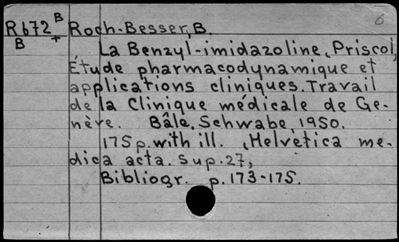 6
R672 B Roch-Besser, B.
B +
La Benzyl-imidazoline, Priscol,
Étude pharmacodynamique et
applications cliniques. Travail
de la Clinique médicale de Ge-
nève. Bâle, Schwabe, 1950.
175p. with ill. (Helvetica me-
dica acta. Sup. 27,
Bibliogr. p. 173-175.